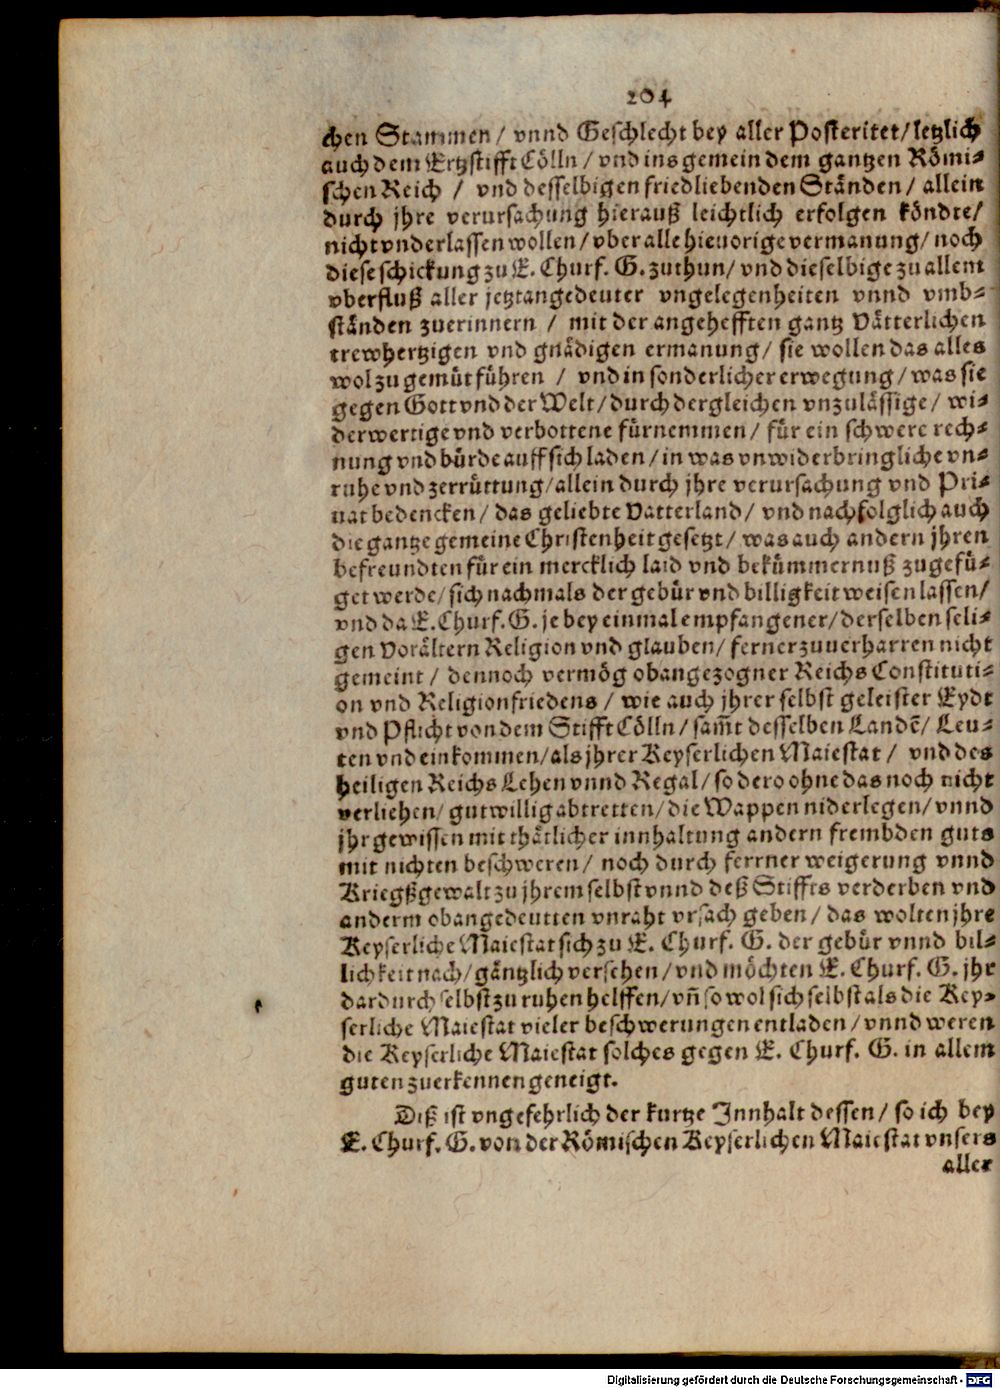 204
chen Stammen / vnnd Geschlecht bey aller Posteritet / letzlich
auch dem Ertzstifft Cölln / vnd ins gemein dem gantzen Römi-
schen Reich / vnd desselbigen friedliebenden Ständen / allein
durch jhre verursachung hierauß leichtlich erfolgen köndte /
nicht vnderlassen wollen / vber alle hieuorige vermanung / noch
diese schickung zu E. Churf. G. zuthun / vnd dieselbige zu allem
vberfluß aller jetztangedeuter vngelegenheiten vnnd vmb-
ständen zuerinnern / mit der angehefften gantz Vätterlichen
trewhertzigen vnd gnädigen ermanung / sie wollen das alles
wol zu gemüt führen / vnd in sonderlicher erwegung / was sie
gegen Gott vnd der Welt / durch dergleichen vnzulässige / wi-
derwertige vnd verbottene fürnemmen / für ein schwere rech-
nung vnd bürde auff sich laden / in was vnwiderbringliche vn-
ruhe vnd zerrüttung / allein durch jhre verursachung vnd Pri-
uat bedencken / das geliebte Vatterland / vnd nachfolglich auch
die gantze gemeine Christenheit gesetzt / was auch andern jhren
befreundten für ein mercklich laid vnd bekümmernuß zugefü-
get werde / sich nachmals der gebür vnd billigkeit weisen lassen /
vnd da E. Churf. G. je bey einmal empfangener / derselben seli-
gen Vorältern Religion vnd glauben / ferner zuuerharren nicht
gemeint / dennoch vermög obangezogner Reichs Constituti-
on vnd Religionfriedens / wie auch jhrer selbst geleister Eydt
vnd Pflicht von dem Stifft Cölln / sam̃t desselben Landẽ / Leu-
ten vnd einkommen / als jhrer Keyserlichen Maiestat / vnd des
heiligen Reichs Lehen vnnd Regal / so dero ohne das noch nicht
verliehen / gutwillig abtretten / die Wappen niderlegen / vnnd
jhr gewissen mit thätlicher innhaltung andern frembden guts
mit nichten beschweren / noch durch ferrner weigerung vnnd
Kriegßgewalt zu jhrem selbst vnnd deß Stiffts verderben vnd
anderm obangedeutten vnraht vrsach geben / das wolten jhre
Keyserliche Maiestat sich zu E. Churf. G. der gebür vnnd bil-
lichkeit nach / gäntzlich versehen / vnd möchten E. Churf. G. jhr
dardurch selbst zu ruhen helffen / vñ so wol sich selbst als die Key-
serliche Maiestat vieler beschwerungen entladen / vnnd weren
die Keyserliche Maiestat solches gegen E. Churf. G. in allem
guten zuerkennen geneigt.
Diß ist vngefehrlich der kurtze Innhalt dessen / so ich bey
E. Churf. G. von der Römischen Keyserlichen Maiestat vnsers
aller
Digitalisierung gefördert durch die Deutsche Forschungsgemeinschaft - DFG